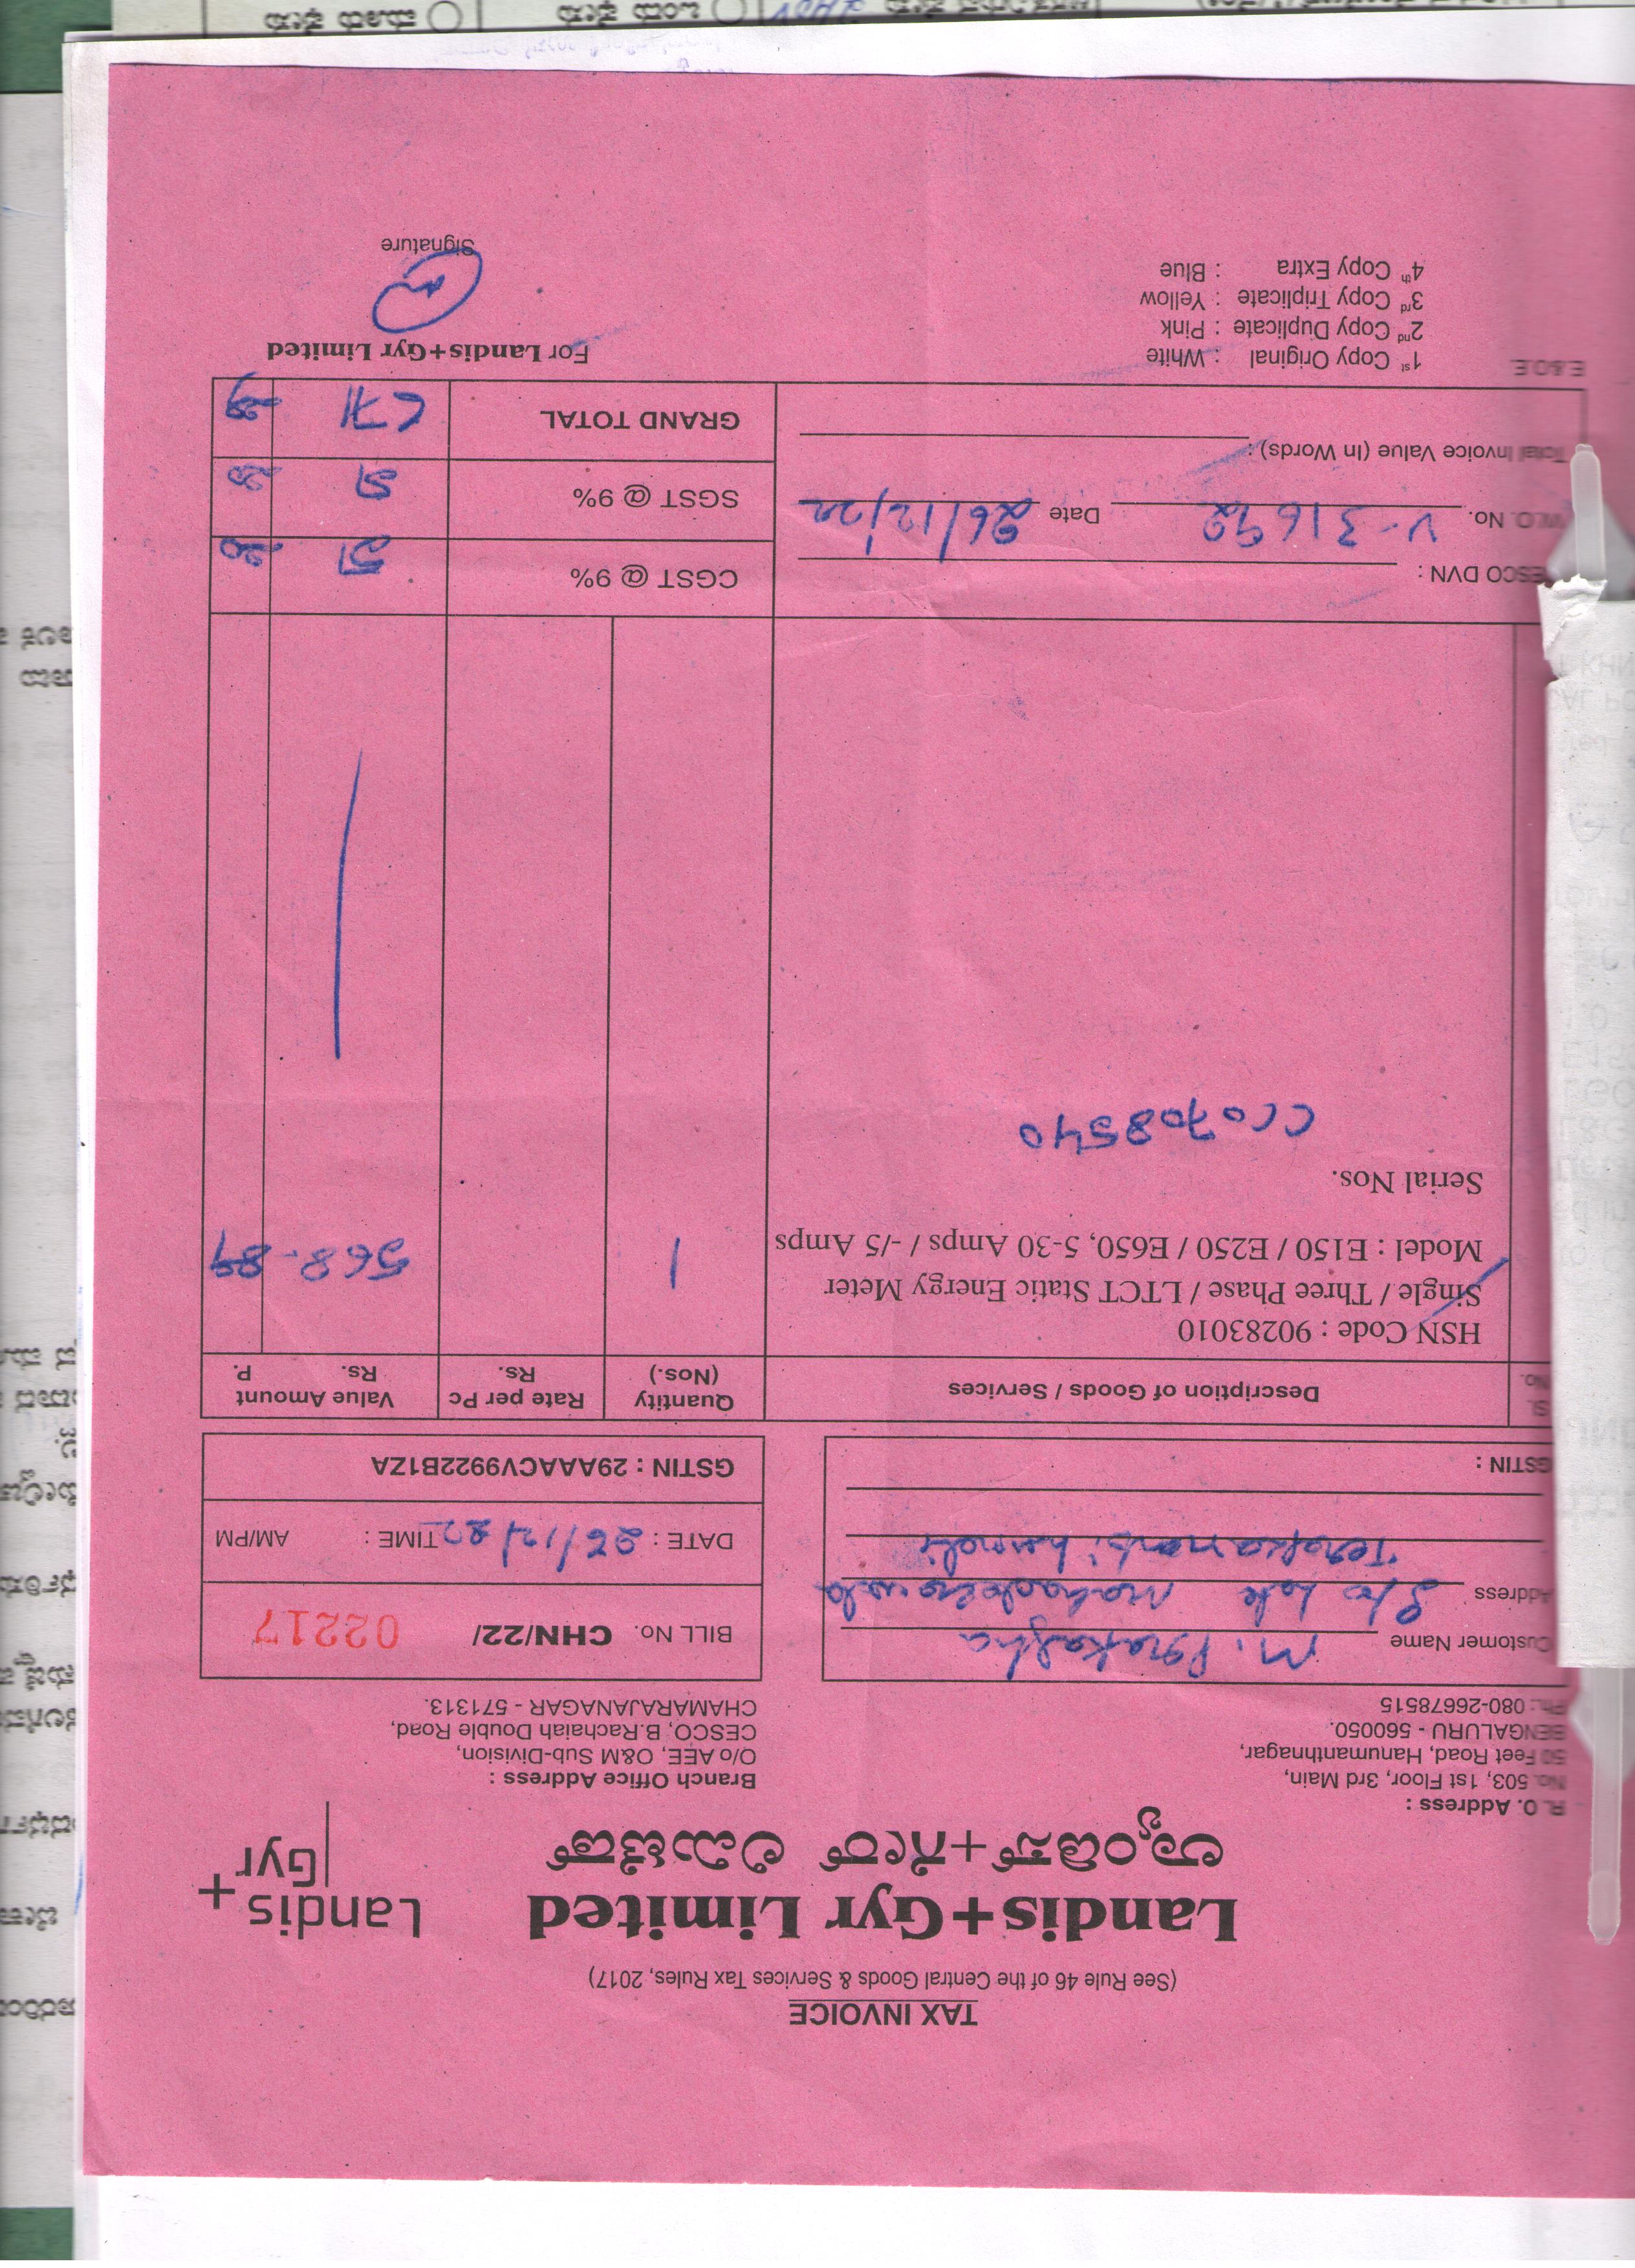 TAX INVOICE
(See Rule 46 of the Central Goods & Services Tax Rules, 2017)
Landis+Gyr Limited
ಲ್ಯಾಂಡಿಸ್+ಗೇರ್ ಲಿಮಿಟೆಡ್
Landis
+
Gyr
R. O. Address :
No. 503, 1st Floor, 3rd Main,
50 Feet Road, Hanumanthnagar,
BENGALURU - 560050.
Ph.: 080-26678515
Branch Office Address :
O/o AEE, O&M Sub-Division,
CESCO, B.Rachaiah Double Road,
CHAMARAJANAGAR - 571313.
Customer Name M. Prakasha
Address S/o Late Mahadeva
Terakanambi hmdi
GSTIN :
BILL No. CHN/22/ 02217
DATE : 26/12/22 TIME : AM/PM
GSTIN : 29AAACV9922B1ZA
Sl. No. Description of Goods / Services Quantity (Nos.) Rate per Pc Rs. Value Amount Rs. P.
HSN Code : 90283010
Single / Three Phase / LTCT Static Energy Meter
Model : E150 / E250 / E650, 5-30 Amps / -/5 Amps 1 568-89
Serial Nos.
CC0708540
ESCO DVN : CGST @ 9% 51 20
W.O. No. V-31692 Date 26/12/22 SGST @ 9% 51 20
Total Invoice Value (In Words) : GRAND TOTAL 671 29
E.&O.E.
1st Copy Original : White
2nd Copy Duplicate : Pink
3rd Copy Triplicate : Yellow
4th Copy Extra : Blue
For Landis+Gyr Limited
Signature